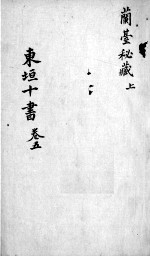 蘭臺秘藏上
東垣十書卷五